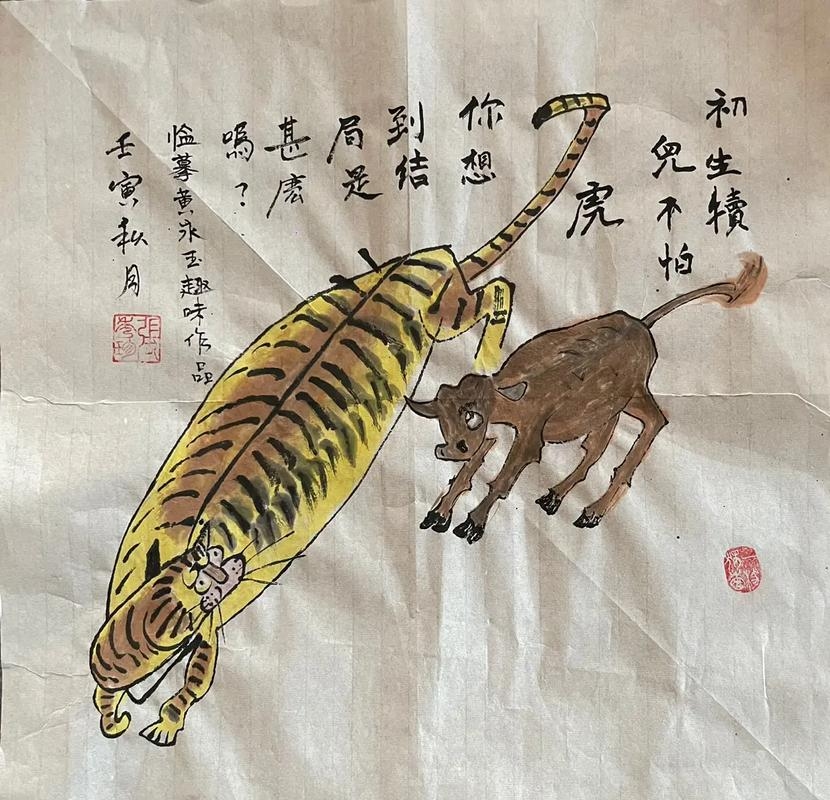 初生犢
兒不怕
虎
你想
到结
局是
甚麽
嗎？
临摹黄永玉趣味作品
壬寅秋月